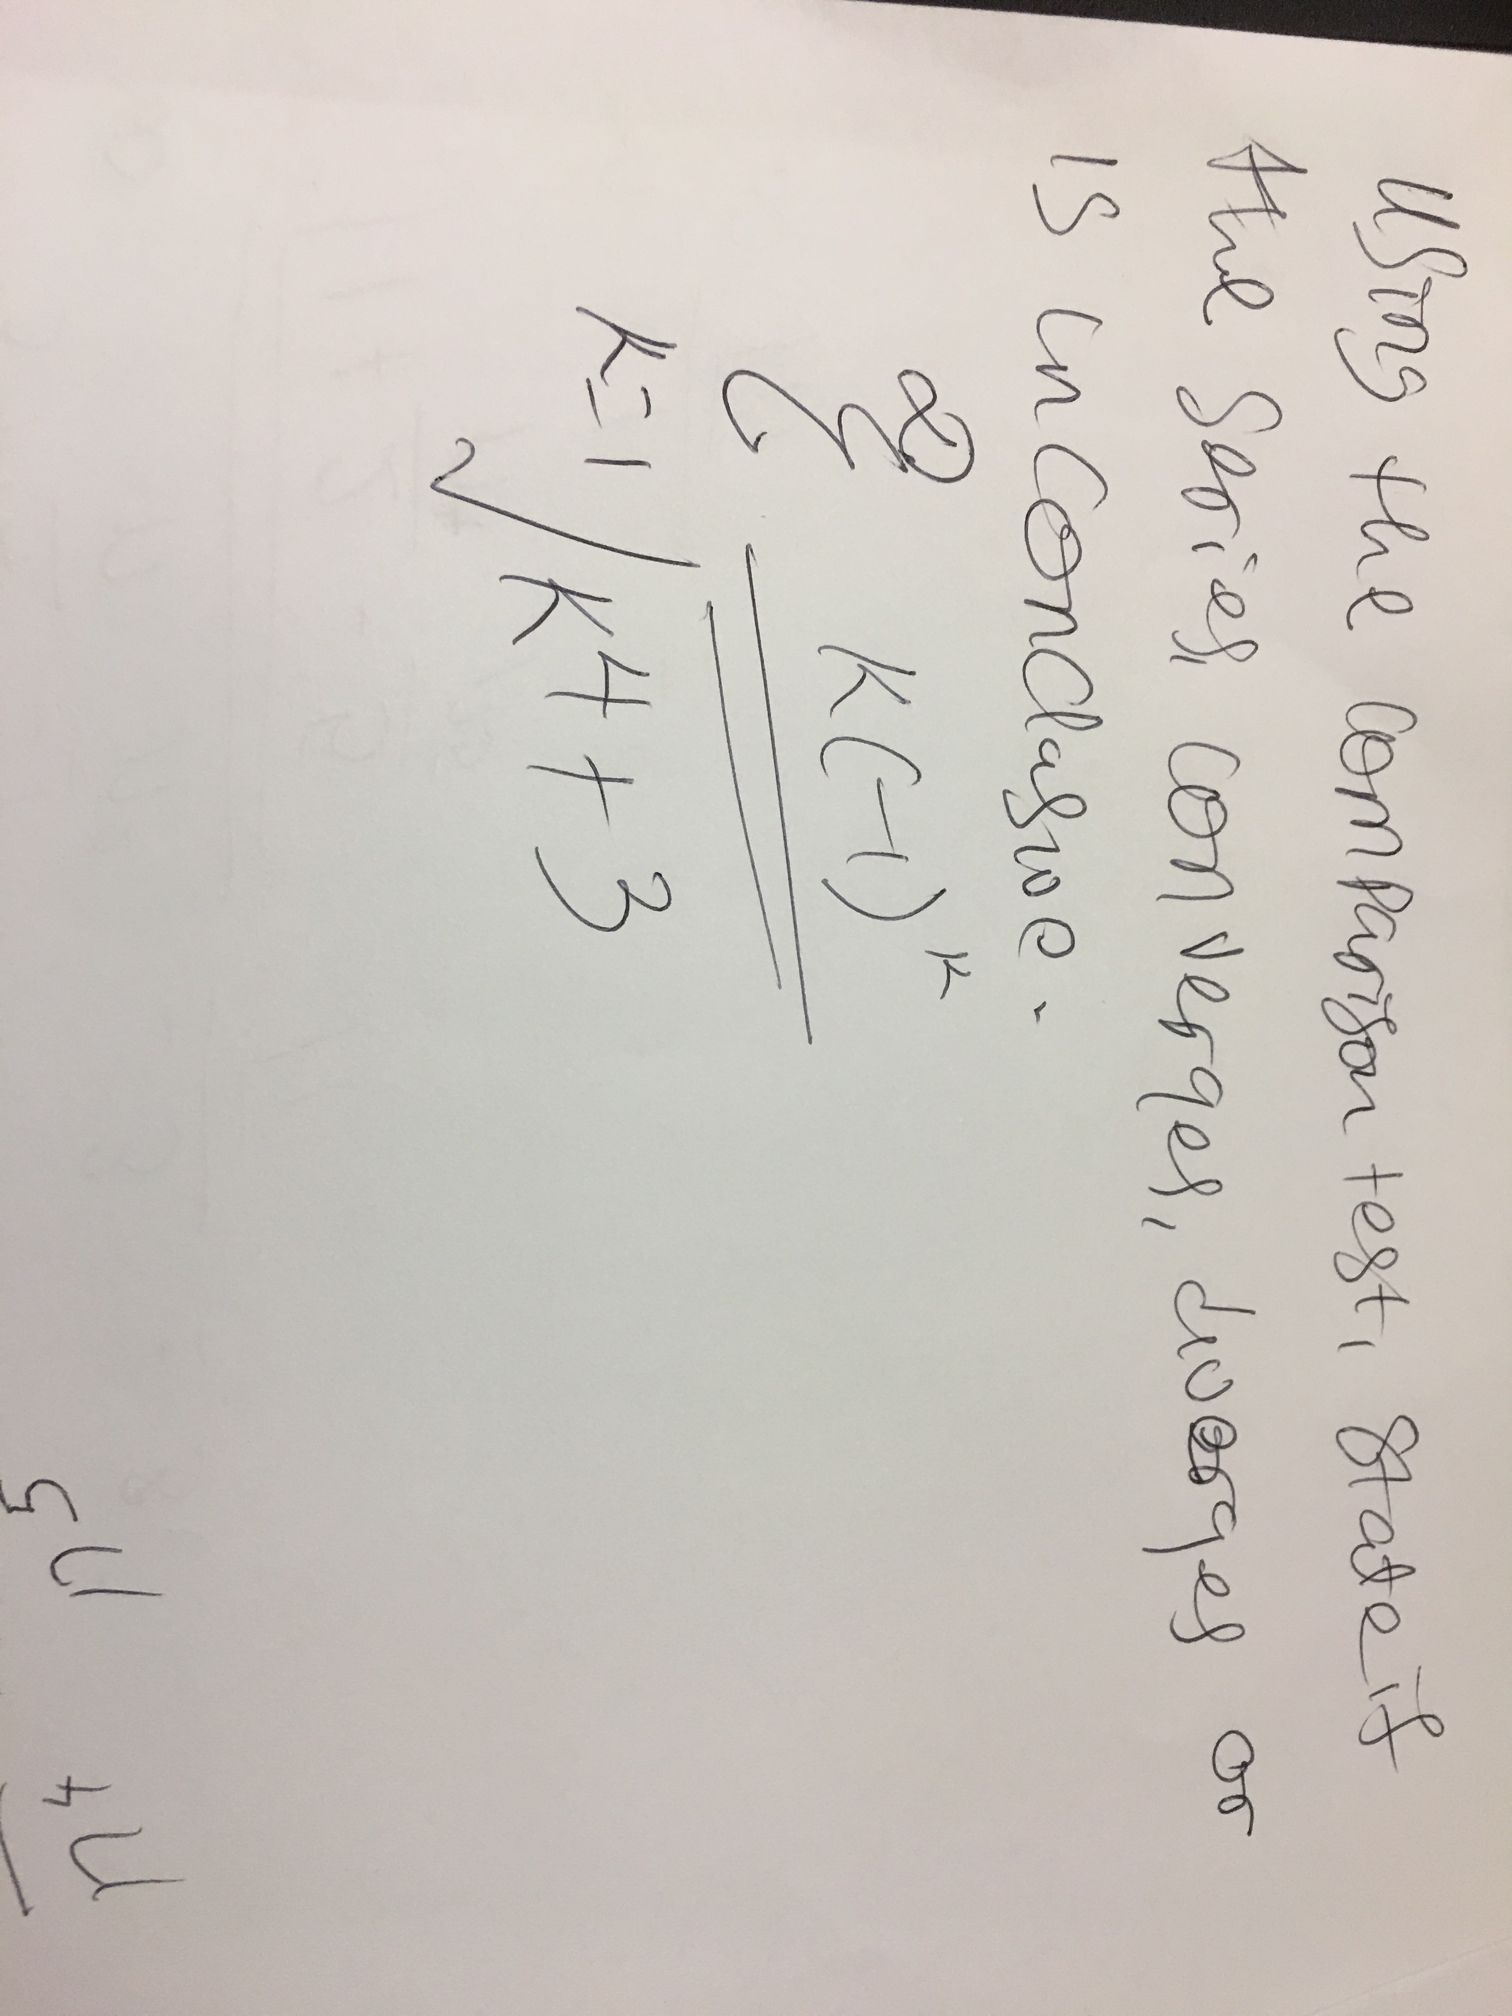 Using the comparison test, state if
the series, converges, diverges or
is inconclusive.
∞
Σ k(-1)^k
k=1
√k4+3
5n n4